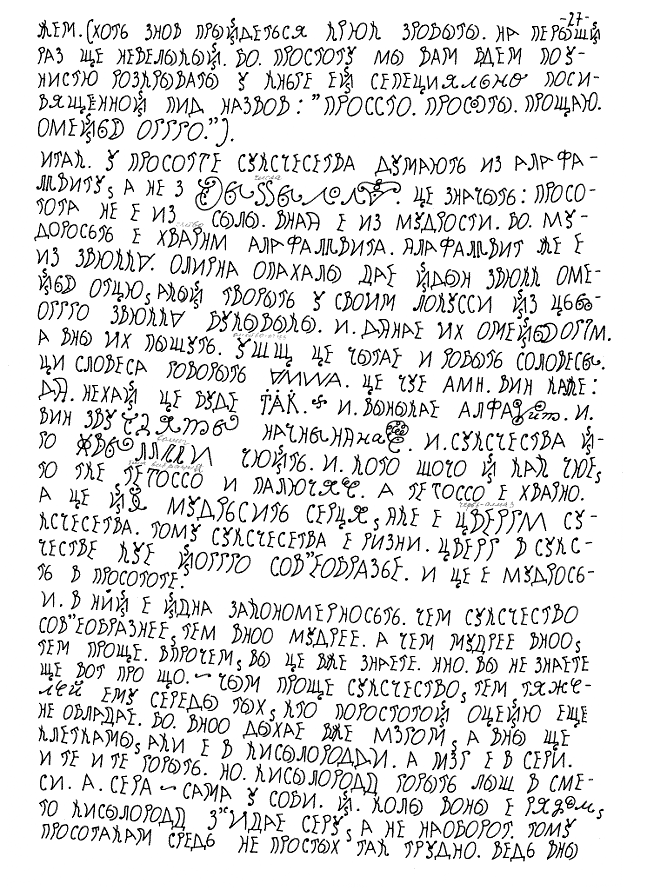 -27-
ЖЕМ. (ХОТЬ ЗНОВ ПРЫЙДЕТЬСЯ КРЮК ЗРОБЫТЬ. НА ПЕРЬШЙ
РАЗ ЩЕ НЕВЕЛЫКЫЙ. БО. ПРОСТОТУ МЫ ВАМ БДЕМ ПОУ-
НИСТЮ РОЗКРЫВАТЫ У КНЫГЕ ЕЙ СЕПЕЦИЯЛЬНО ПОСИ-
ВЯЩЕННОЙ ПИД НАЗВОВ: "ПРОССТО. ПРОСОТЫ. ПРОЩАЮ.
ОМЕЙЬD ОГГГО.").
ИТАК. У ПРОСОТТЕ СУКСЧЕСЕТВА ДУМАЮТЬ ИЗ АЛАФА-
МВИТУ, А НЕ З ЦЕ ЗНАЧЫТЬ: ПРОСО-
ТОТА НЕ Е ИЗ СЫЛЫ. ВНАЯ Е ИЗ МУДРОСТИ. БО. МУ-
ДОРОСЬТЬ Е ХВАРНМ АЛАФАМВИТА. АЛАФАМВИТ ЖЕ Е
ИЗ ЗВЮККV. ОЛИРНА ОПАХАЛО ДАЕ ЙДЫН ЗВЮКК ОМЕ-
ЙЬD ОТЦЮ, АКЫЙ ТВОРЫТЬ У СВОИМ ЛОКУССИ ЙЗ ЦЬОГО-
ОГГГО ЗВЮККV БУКОВЫКЫ. И. ДЯНАЕ ИХ ОМЕЙЬD ОГГМ.
А ВНЫ ИХ ПЫШУТЬ. УЩЩ ЦЕ ЧЫТАЕ И РОБЫТЬ СОЛОВЕСЫ.
ЦИ СЛОВЕСА ГОВОРЫТЬ ЦЕ ЧУЕ АМН. ВИН КАЖЕ:
ДА. НЕХАЙ ЦЕ БУДЕ ТАК. И. ВЫНЫКАЕ АЛФА И.
ВИН ЗВУ НАЧНЫНАНА И. СУКСЧЕСТВА Й-
ГО ЧЮЙТЬ. И. КОГО ЩОГО Й КАК ЧЮЕ,
ТО ТКЕ ТЕТОССО И ПАЛЮЧЯЕ. А ТЕТОССО Е ХВАРНО.
А ЦЕ ЙЯ МУДРЬСИТЬ СЕРЦЯ, АКЕ Е ЦВЕРГМ СУ-
КСЧЕСЕТВА. ТОМУ СУКСЧЕСЕТВА Е РИЗНИ. ЦВЕРГ В СУКС-
ЧЕСТВЕ КУЕ ЙОГГГО СОВ"ЕОБРАЗЬЕ. И ЦЕ Е МУДРОСЬ-
ТЬ В ПРОСОТОТЕ.
И. В НИЙ Е ЙДНА ЗАКОНОМЕРНОСЬТЬ. ЧЕМ СУКСЧЕСТВО
СОВ"ЕОБРАЗНЕЕ, ТЕМ ВНОО МУДРЕЕ. А ЧЕМ МУДРЕЕ ВНОО,
ТЕМ ПРОЩЕ. ВПРОЧЕМ, ВЫ ЦЕ ВЖЕ ЗНАЕТЕ. ННО. ВЫ НЕ ЗНАЕТЕ
ЩЕ ВОТ ПРО ЩО. ~ ЧЫМ ПРОЩЕ СУКСЧЕСТВО, ТЕМ ТЯЖЕ-
ЛЕЙ ЕМУ СЕРЕДЫ ТЫХ, КТО ПОРОСТОТОЙ ОЦЕЙЮ ЕЩЕ
НЕ ОБЛАДАЕ. БО. ВНОО ДЫХАЕ ВЖЕ МЗГОМ, А ВНЫ ЩЕ
КЛЕТКАМЫ, АКИ Е В КИСЫЛОРОДДИ. А МЗГ Е В СЕРИ.
И ТЕ И ТЕ ГОРЫТЬ. НО. КИСЫЛОРОДД ГОРЫТЬ ЛЫШ В СМЕ-
СИ. А. СЕРА ~ САМА У СОБИ. Й. КОЛЫ ВОНЫ Е РЯДОМ,
ТО КИСЫЛОРОДД З"ИДАЕ СЕРУ, А НЕ НАОБОРОТ. ТОМУ
ПРОСОТАКАМ СРЕДЬ НЕ ПРОСТЫХ ТАК ТРУДНО. ВЕДЬ ВНЫ